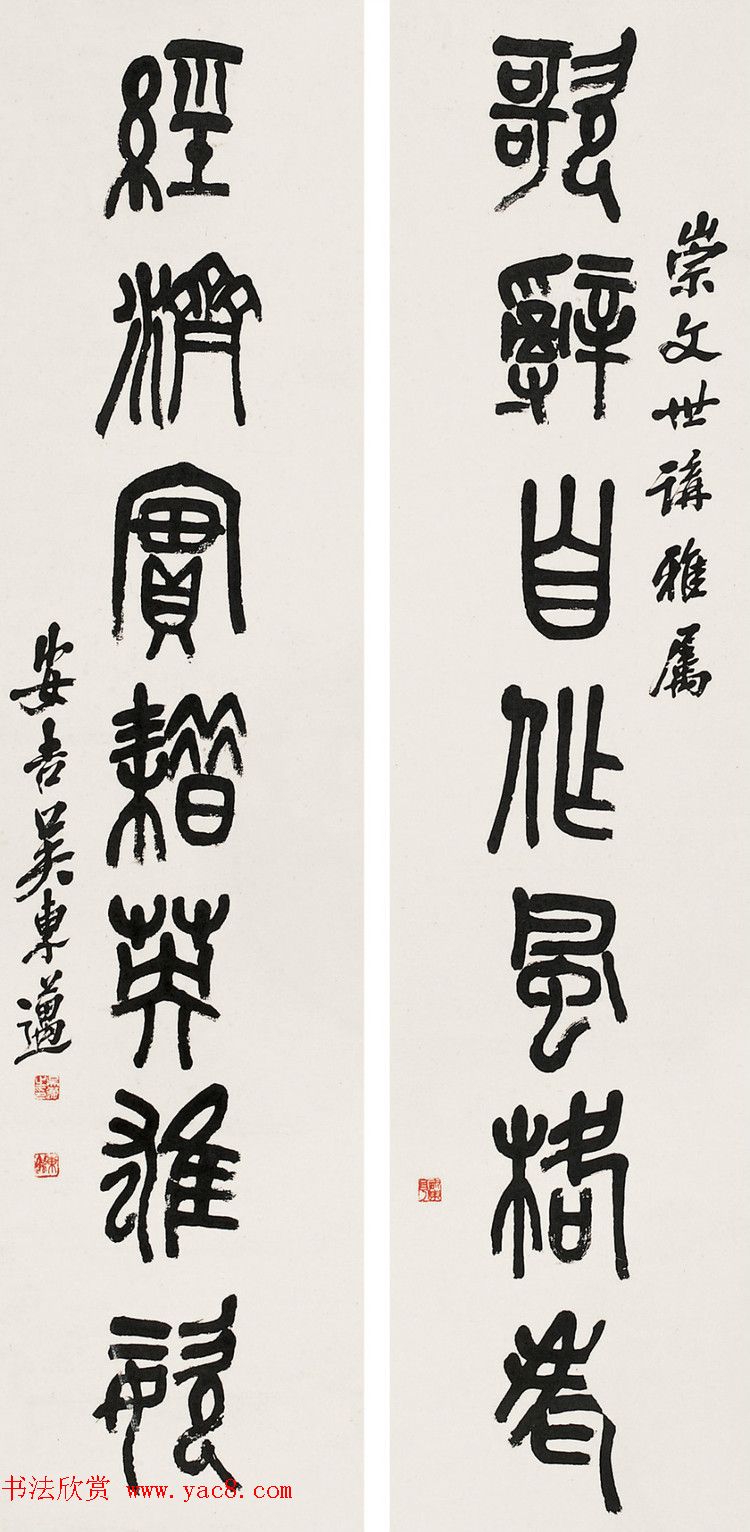 崇文世講雅屬
歌辭自作風格老
經濟實耤英雄姿
安吉吳東邁
书法欣赏 www.yac8.com